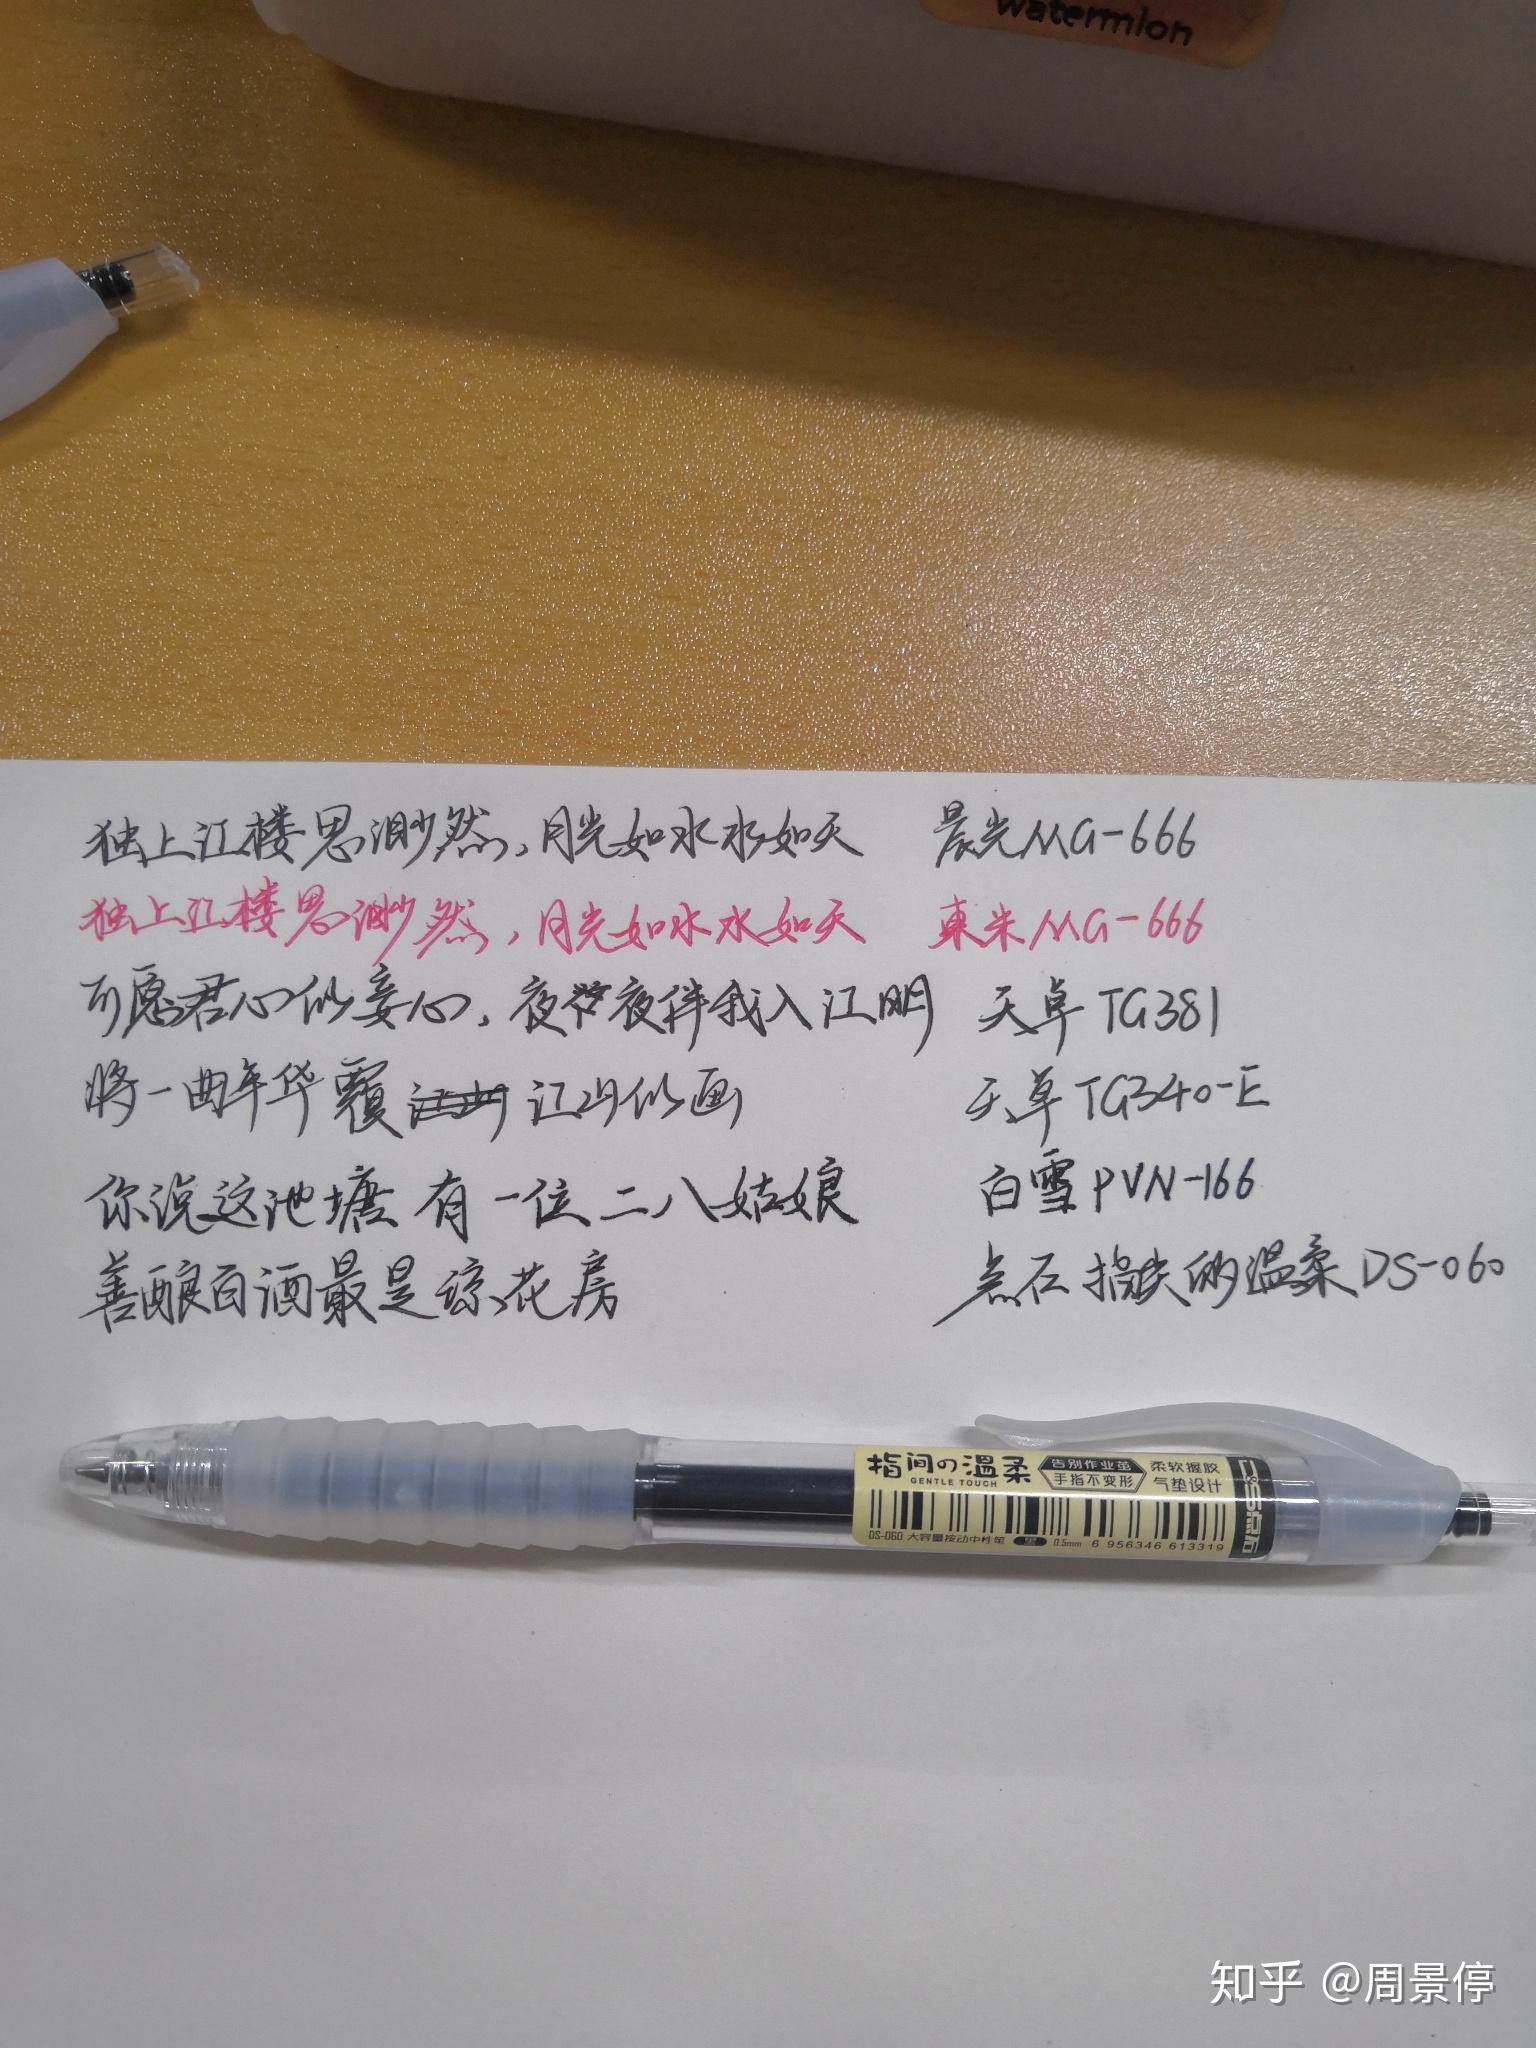 watermlon
独上江楼思渺然，月光如水水如天 晨光MG-666
独上江楼思渺然，月光如水水如天 東米MG-666
可愿君心似妾心，夜夜伴我入江眠 天卓TG381
将一曲年华覆 江山似画 天卓TG340-E
你说这池塘有一位二八姑娘 白雪PVN-166
善酿百酒最是琼花房 点石指尖的温柔DS-060
指间の温柔 告别作业茧 柔软握胶
GENTLE TOUCH 手指不变形 气垫设计
DS-060 大容量按动中性笔 黑 0.5mm 6 956346 613319
点石
知乎 @周景停